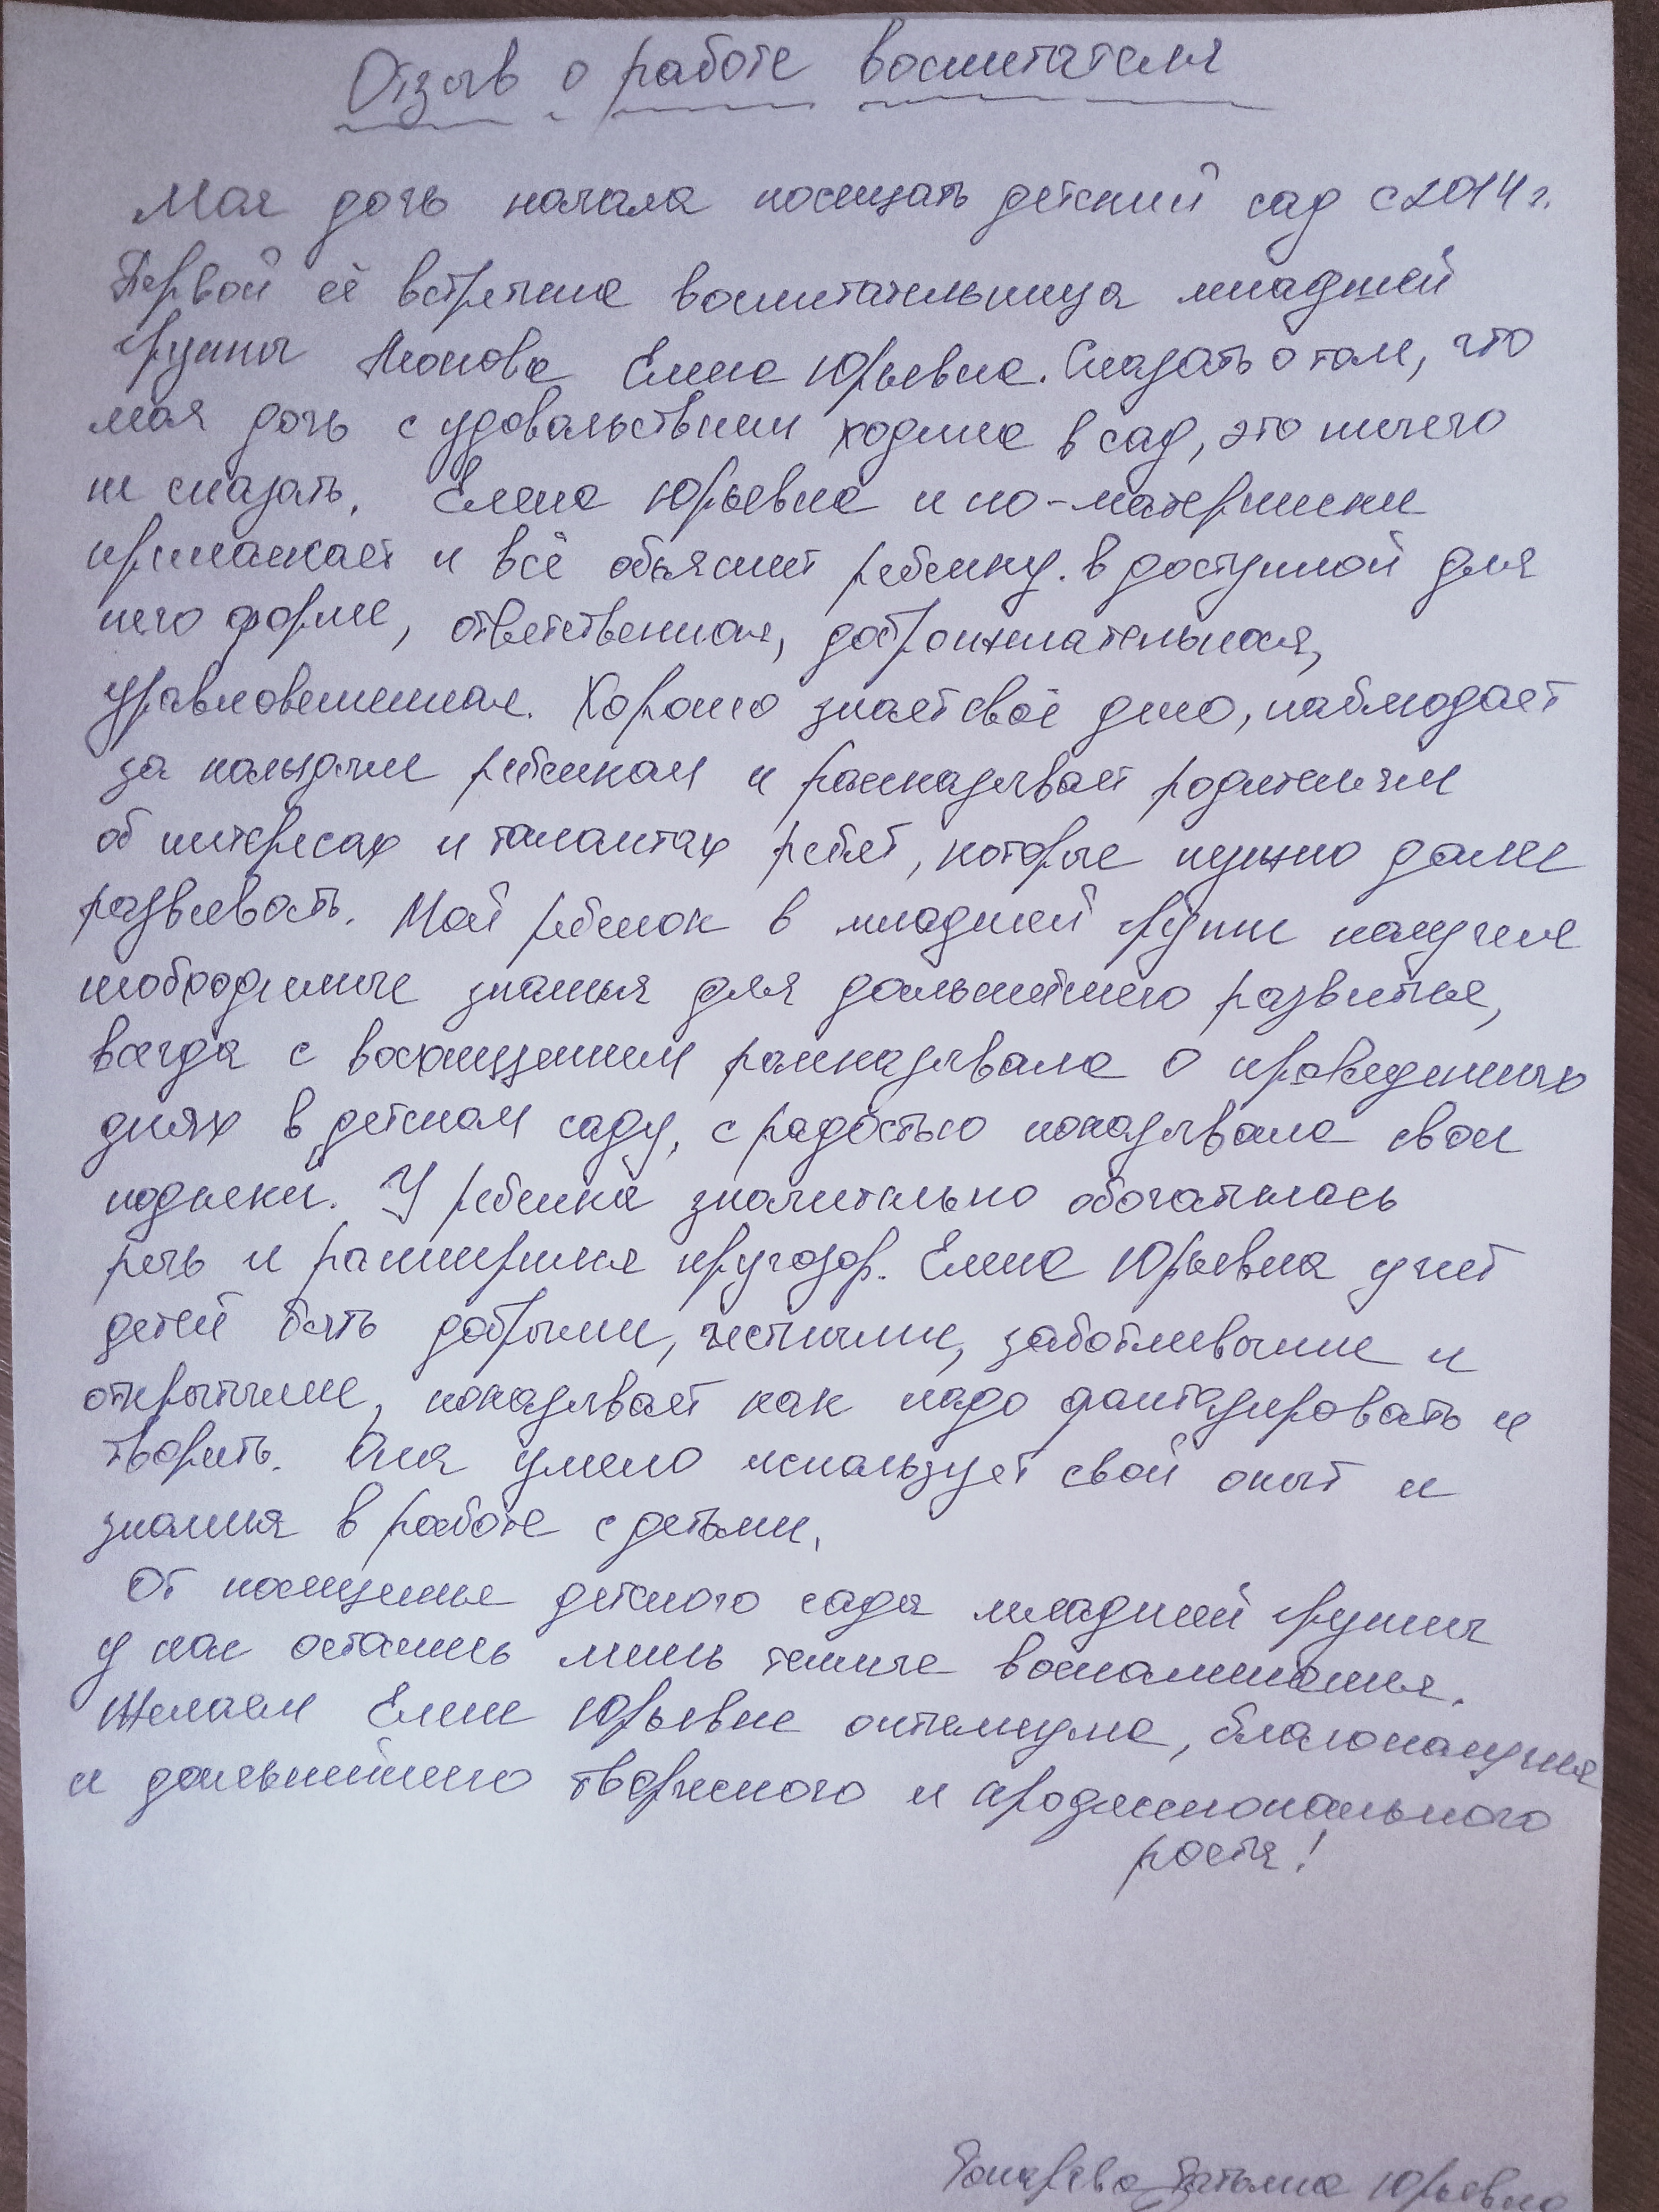 Отзыв о работе воспитателя
Моя дочь начала посещать детский сад с 2014 г.
Первой её встретила воспитательница младшей
группы Елена Юрьевна. Сказать о том, что
моя дочь с удовольствием ходила в сад, это ничего
не сказать. Елена Юрьевна и по-матерински
приласкает и всё объяснит ребенку в доступной для
него форме, ответственная, доброжелательная,
уравновешенная. Хорошо знает своё дело, наблюдает
за каждым ребенком и рассказывает родителям
об интересах и талантах ребят, которые нужно далее
развивать. Мой ребенок в младшей группе получил
необходимые знания для дальнейшего развития,
всегда с восхищением рассказывала о проведенных
днях в детском саду, с радостью показывала свои
поделки. У ребенка значительно обогатилась
речь и расширился кругозор. Елена Юрьевна учит
детей быть добрыми, честными, заботливыми и
открытыми, показывает как надо фантазировать и
творить. Она умело использует свой опыт и
знания в работе с детьми.
От посещения детского сада младшей группы
у нас остались лишь теплые воспоминания.
Желаем Елене Юрьевне оптимизма, благополучия
и дальнейшего творческого и профессионального
роста!
Татьяна Юрьевна